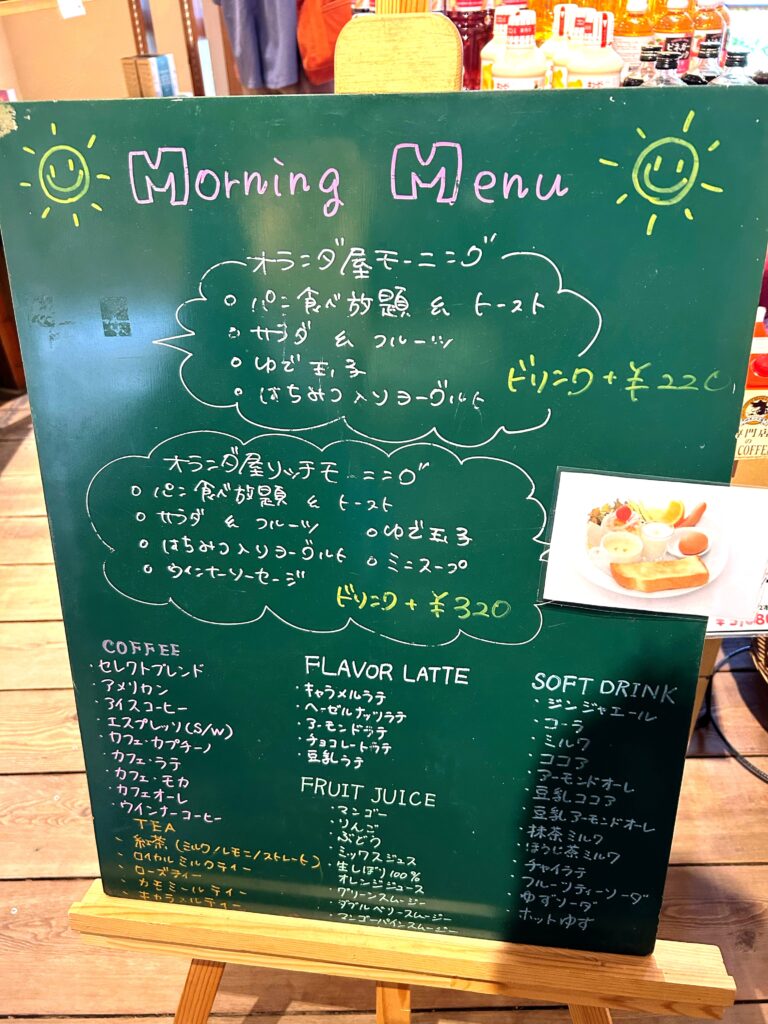 Morning Menu
オランダ屋モーニング
○ パン食べ放題 & トースト
○ サラダ & フルーツ
○ ゆで玉子
○ はちみつ入りヨーグルト
ドリンク + ¥220
オランダ屋リッチモーニング
○ パン食べ放題 & トースト
○ サラダ & フルーツ ○ ゆで玉子
○ はちみつ入りヨーグルト ○ ミニスープ
○ ウインナーソーセージ
ドリンク + ¥320
COFFEE
・セレクトブレンド
・アメリカン
・アイスコーヒー
・エスプレッソ(S/W)
・カフェ・カプチーノ
・カフェ・ラテ
・カフェ・モカ
・カフェオーレ
・ウインナーコーヒー
TEA
・紅茶 (ミルク/レモン/ストレート)
・ロイヤルミルクティー
・ローズティー
・カモミールティー
・キャラメルティー
FLAVOR LATTE
・キャラメルラテ
・ヘーゼルナッツラテ
・アーモンドラテ
・チョコレートラテ
・豆乳ラテ
FRUIT JUICE
・マンゴー
・りんご
・ぶどう
・ミックスジュース
・生しぼり100%
オレンジジュース
・グリーンスムージー
・ダブルベリースムージー
・マンゴーパインスムージー
SOFT DRINK
・ジンジャエール
・コーラ
・ミルク
・ココア
・アーモンドオーレ
・豆乳ココア
・豆乳アーモンドオーレ
・抹茶ミルク
・ほうじ茶ミルク
・チャイラテ
・フルーツティーソーダ
・ゆずソーダ
・ホットゆず
専門店
の
COFFEE